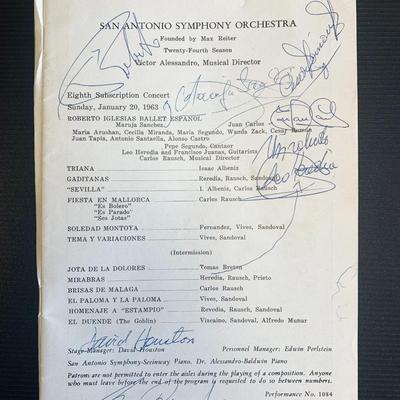 SAN ANTONIO SYMPHONY ORCHESTRA
Founded by Max Reiter
Twenty-Fourth Season
Victor Alessandro, Musical Director
Eighth Subscription Concert
Sunday, January 20, 1963
ROBERTO IGLESIAS BALLET ESPANOL
Maruja Sanchez, Juan Carlos
Maria Arushan, Cecilia Miranda, Maria Segundo, Wanda Zack, Cesar
Juan Tapia, Antonio Santaella, Alonso Castro
Pepe Segundo, Cantaor
Leo Heredia and Francisco Juanas, Guitarists
Carlos Rausch, Musical Director
TRIANA Isaac Albeniz
GADITANAS Heredia, Rausch, Sandoval
"SEVILLA" I. Albeniz, Carlos Rausch
FIESTA EN MALLORCA Carlos Rausch
"Es Bolero"
"Es Parado"
"Ses Jotas"
SOLEDAD MONTOYA Fernandez, Vives, Sandoval
TEMA Y VARIACIONES Vives, Sandoval
(Intermission)
JOTA DE LA DOLORES Tomas Breton
MIRABRAS Heredia, Rausch, Prieto
BRISAS DE MALAGA Carlos Rausch
EL PALOMA Y LA PALOMA Vives, Sandoval
HOMENAJE A "ESTAMPIO" Revuelta, Rausch, Sandoval
EL DUENDE (The Goblin) Viscaino, Sandoval, Alfredo Munar
David Houston
Stage Manager: David Houston Personnel Manager: Edwin Perlstein
San Antonio Symphony-Steinway Piano, Dr. Alessandro-Baldwin Piano
Patrons are not permitted to enter the aisles during the playing of a composition. Anyone
who must leave before the end of the program is requested to do so between numbers.
Performance No. 1084